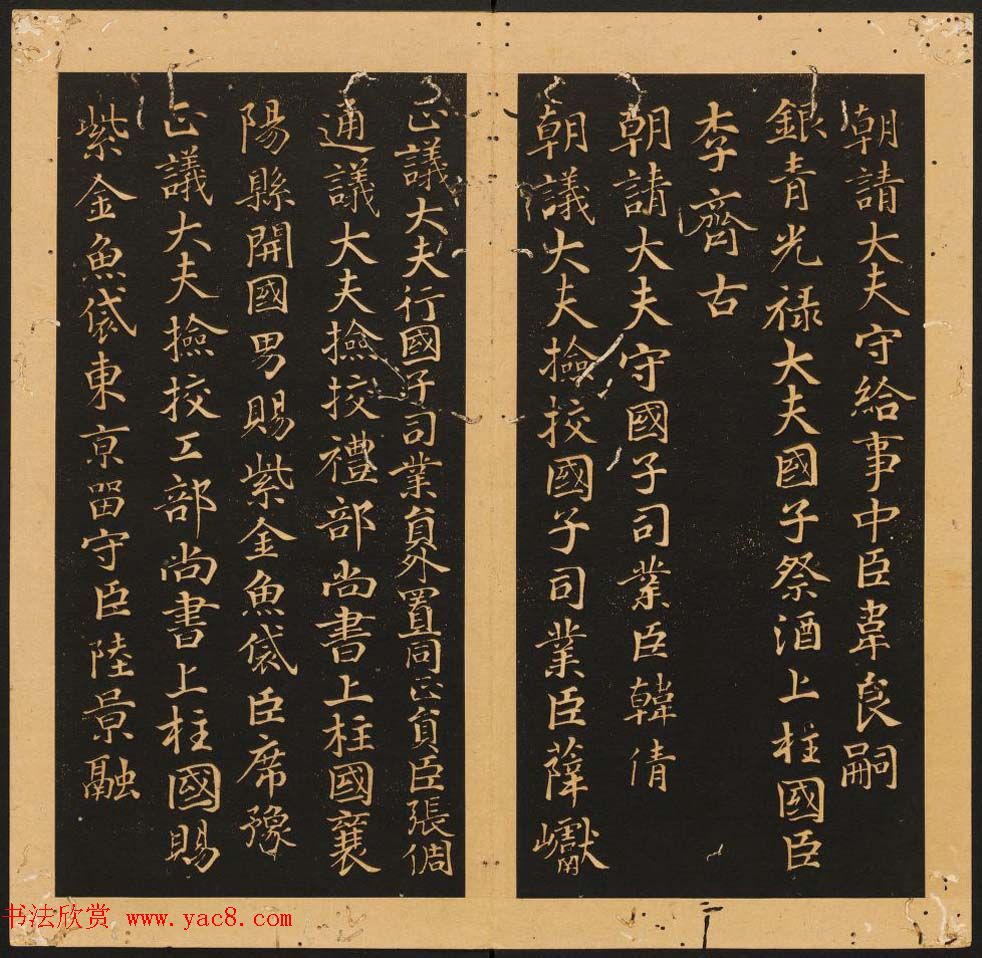 朝請大夫守給事中臣韋良嗣
銀青光祿大夫國子祭酒上柱國臣
李齊古
朝請大夫守國子司業臣韓倩
朝議大夫撿挍國子司業臣薩巘
正議大夫行國子司業員外置同正員臣張倜
通議大夫撿挍禮部尚書上柱國襄
陽縣開國男賜紫金魚袋臣席豫
正議大夫撿挍工部尚書上柱國賜
紫金魚袋東京留守臣陸景融
书法欣赏 www.yac8.com